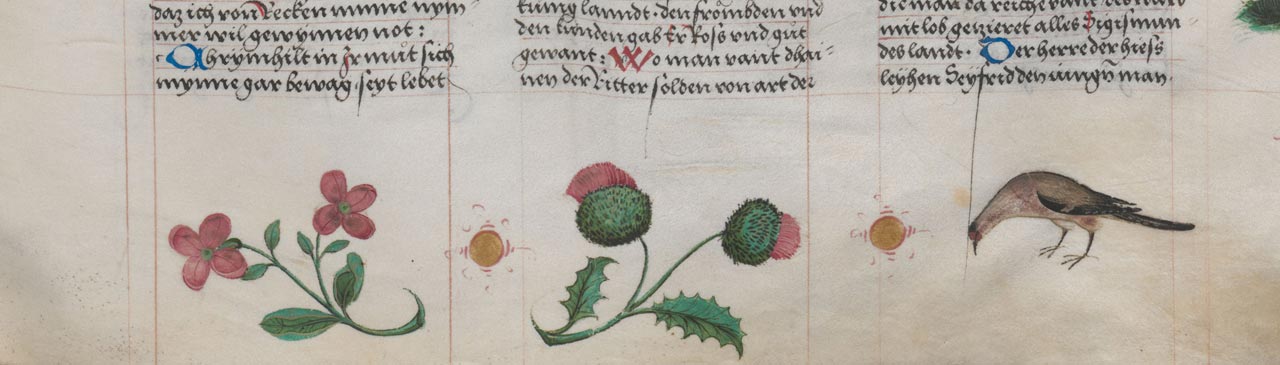 daz ich von Recken minne nym-
mer wil gewynnen not:
Chrymhilt in Jr můt sich
mynne gar bewag. seyt lebet
kunig lanndt. den frömbden vnd
den kunden gab Er Ross vnd gůt
gewant: Wo man vant dhai-
nen der Ritter solden von art der
mit lob gezieret alles Sigismun
des landt. Der herre der hiess
leyhen Seyfrid den iungn man